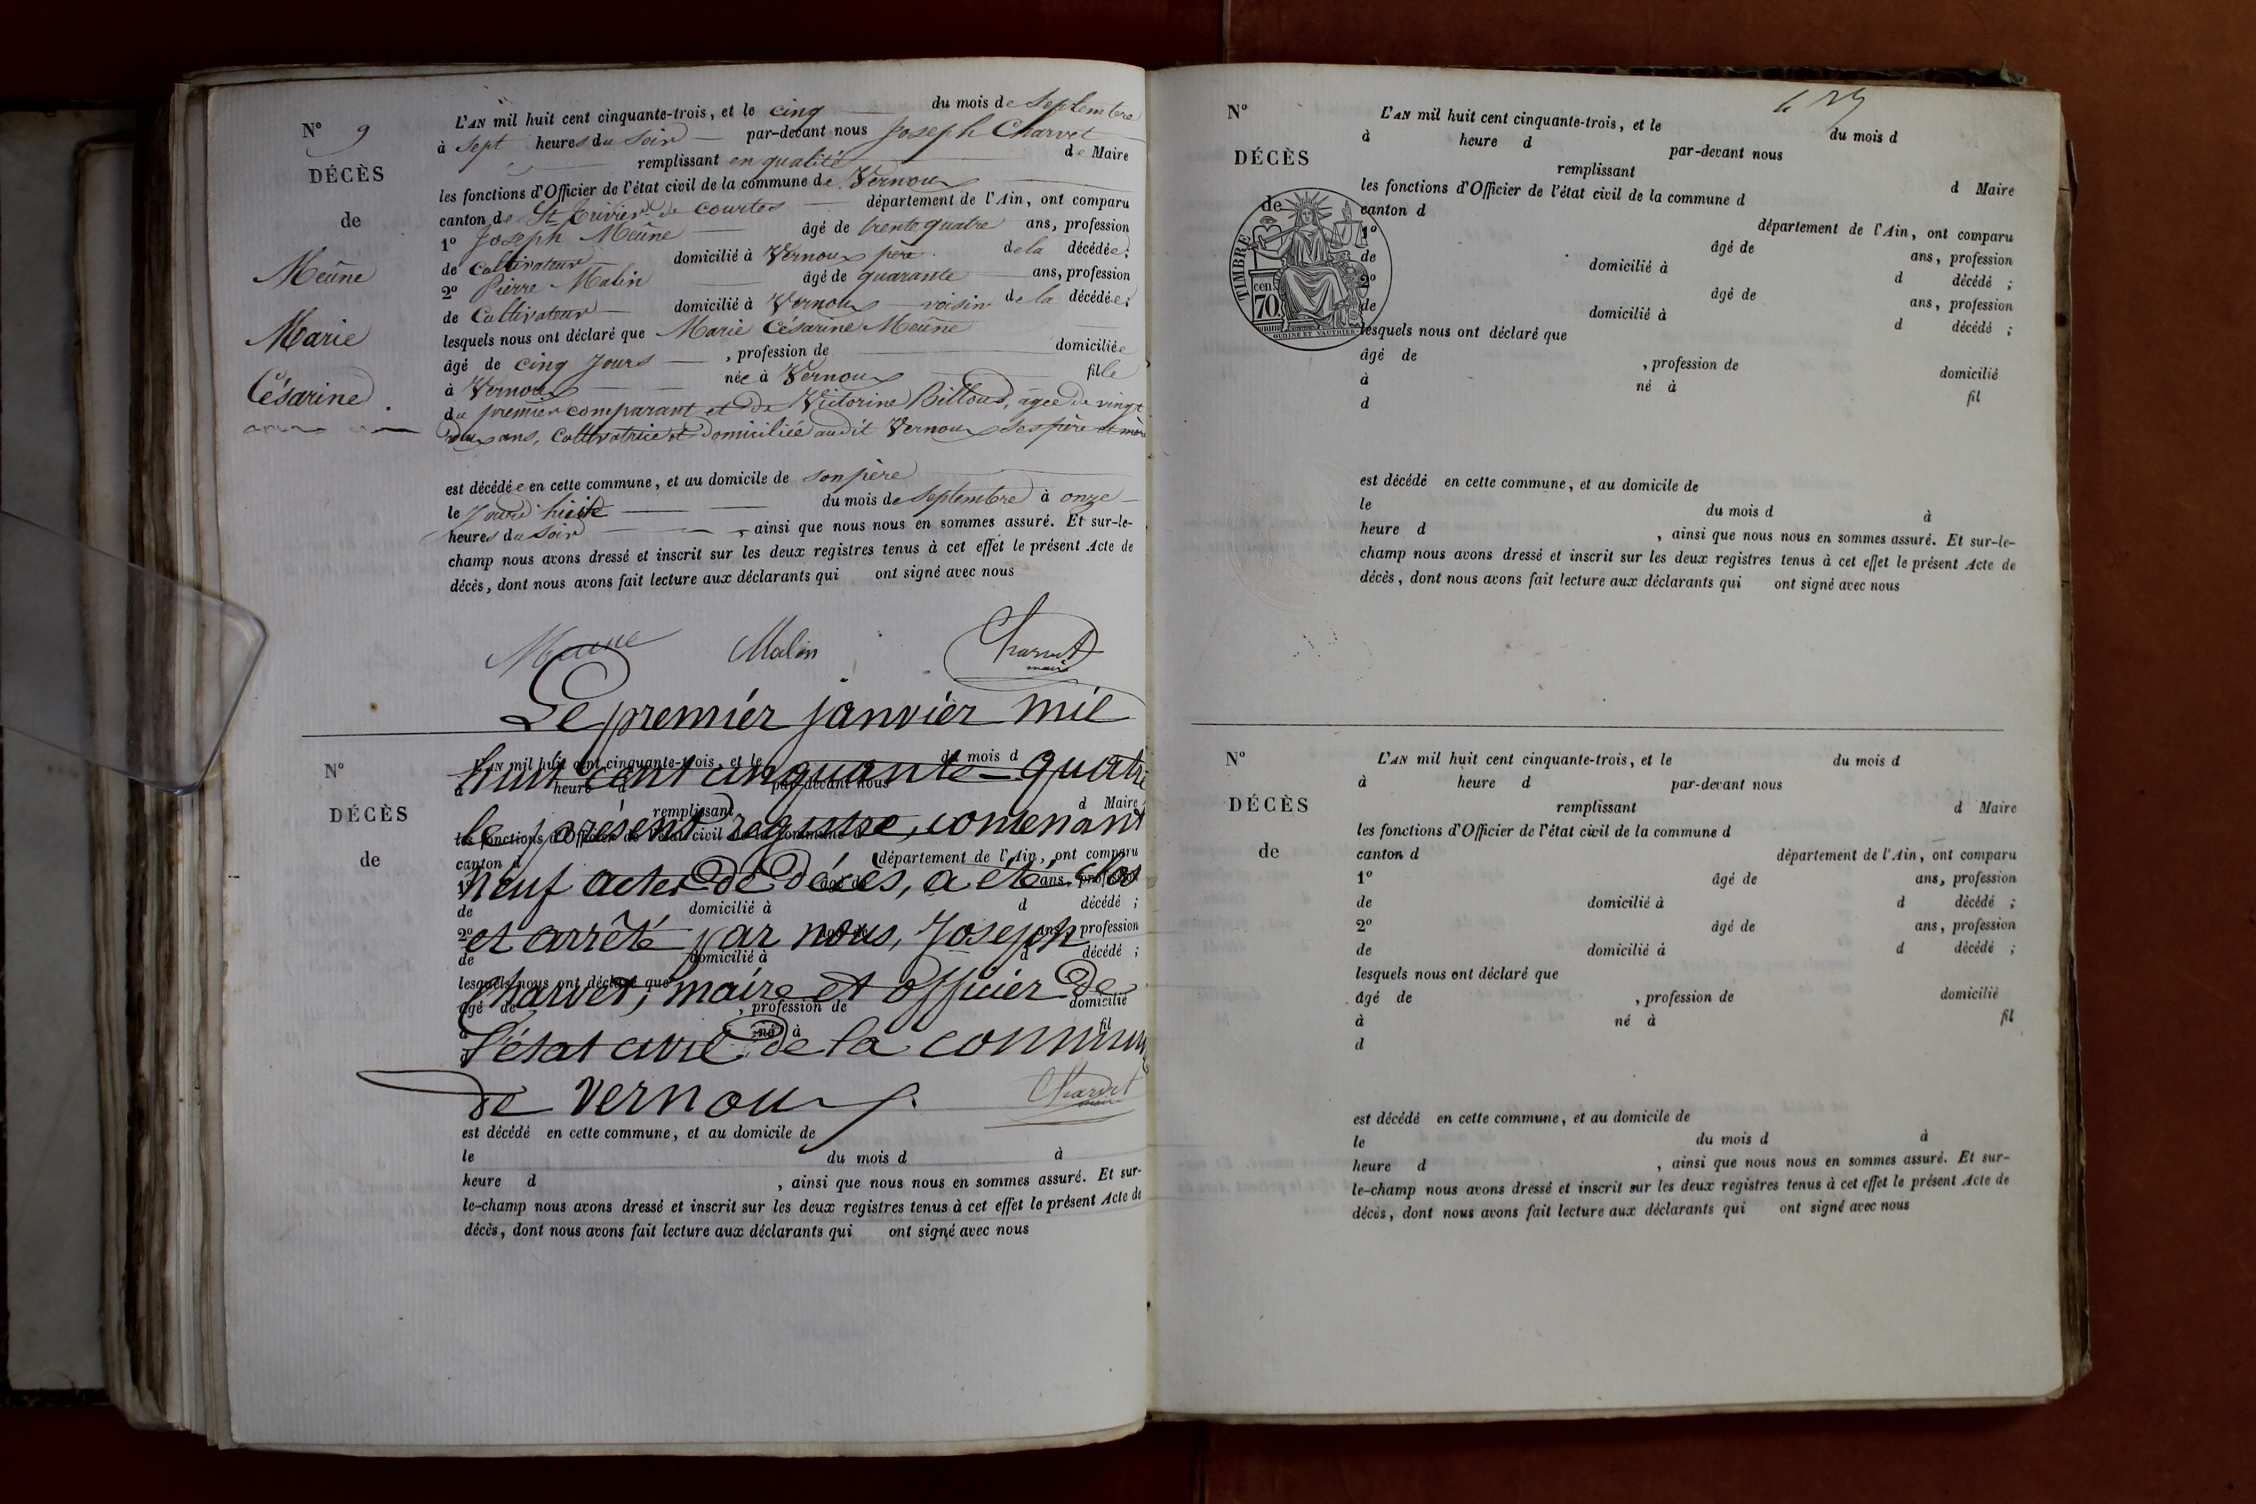 N° 9
DÉCÈS
de
Meûne
Marie
Césarine
L'AN mil huit cent cinquante-trois, et le cinq du mois de Septembre
à sept heures du soir par-devant nous Joseph Charvet
remplissant en qualité de Maire
les fonctions d'Officier de l'état civil de la commune de Vernoux
canton de St Trivier de Courtes département de l'Ain, ont comparu
1° Joseph Meûne âgé de trente quatre ans, profession
de Cultivateur domicilié à Vernoux père de la décédée;
2° Pierre Malin âgé de quarante ans, profession
de Cultivateur domicilié à Vernoux voisin de la décédée;
lesquels nous ont déclaré que Marie Césarine Meûne
âgé de cinq jours , profession de domiciliée
à Vernoux née à Vernoux fille
du premier comparant et de Victorine Billoud, agée de vingt
deux ans, cultivatrice et domiciliée audit Vernoux ses père et mère
est décédée en cette commune, et au domicile de son père
le du mois de Septembre à onze
heures du soir , ainsi que nous nous en sommes assuré. Et sur-le-
champ nous avons dressé et inscrit sur les deux registres tenus à cet effet le présent Acte de
décès, dont nous avons fait lecture aux déclarants qui ont signé avec nous
Meune Malin Charvet
maire
Le premier janvier mil
huit cent cinquante-quatre
le présent registre, contenant
neuf actes de décès, a été clos
et arrêté par nous, Joseph
Charvet, maire et officier de
l'état civil de la commune
de Vernoux.
Charvet
N°
DÉCÈS
de
L'AN mil huit cent cinquante-trois, et le du mois d
à heure d par-devant nous
remplissant d Maire
les fonctions d'Officier de l'état civil de la commune d
canton d département de l'Ain, ont comparu
1° âgé de ans, profession
de domicilié à d décédé ;
2° âgé de ans, profession
de domicilié à d décédé ;
lesquels nous ont déclaré que
âgé de , profession de domicilié
à né à fil
d
est décédé en cette commune, et au domicile de
le du mois d à
heure d , ainsi que nous nous en sommes assuré. Et sur-
le-champ nous avons dressé et inscrit sur les deux registres tenus à cet effet le présent Acte de
décès, dont nous avons fait lecture aux déclarants qui ont signé avec nous
N°
DÉCÈS
de
TIMBRE
cen.
70
OUDINÉ ET VAUTHIER
L'AN mil huit cent cinquante-trois, et le du mois d
à heure d par-devant nous
remplissant d Maire
les fonctions d'Officier de l'état civil de la commune d
canton d département de l'Ain, ont comparu
1° âgé de ans, profession
de domicilié à d décédé ;
2° âgé de ans, profession
de domicilié à d décédé ;
lesquels nous ont déclaré que
âgé de , profession de domicilié
à né à fil
d
est décédé en cette commune, et au domicile de
le du mois d à
heure d , ainsi que nous nous en sommes assuré. Et sur-le-
champ nous avons dressé et inscrit sur les deux registres tenus à cet effet le présent Acte de
décès, dont nous avons fait lecture aux déclarants qui ont signé avec nous
N°
DÉCÈS
de
L'AN mil huit cent cinquante-trois, et le du mois d
à heure d par-devant nous
remplissant d Maire
les fonctions d'Officier de l'état civil de la commune d
canton d département de l'Ain, ont comparu
1° âgé de ans, profession
de domicilié à d décédé ;
2° âgé de ans, profession
de domicilié à d décédé ;
lesquels nous ont déclaré que
âgé de , profession de domicilié
à né à fil
d
est décédé en cette commune, et au domicile de
le du mois d à
heure d , ainsi que nous nous en sommes assuré. Et sur-
le-champ nous avons dressé et inscrit sur les deux registres tenus à cet effet le présent Acte de
décès, dont nous avons fait lecture aux déclarants qui ont signé avec nous